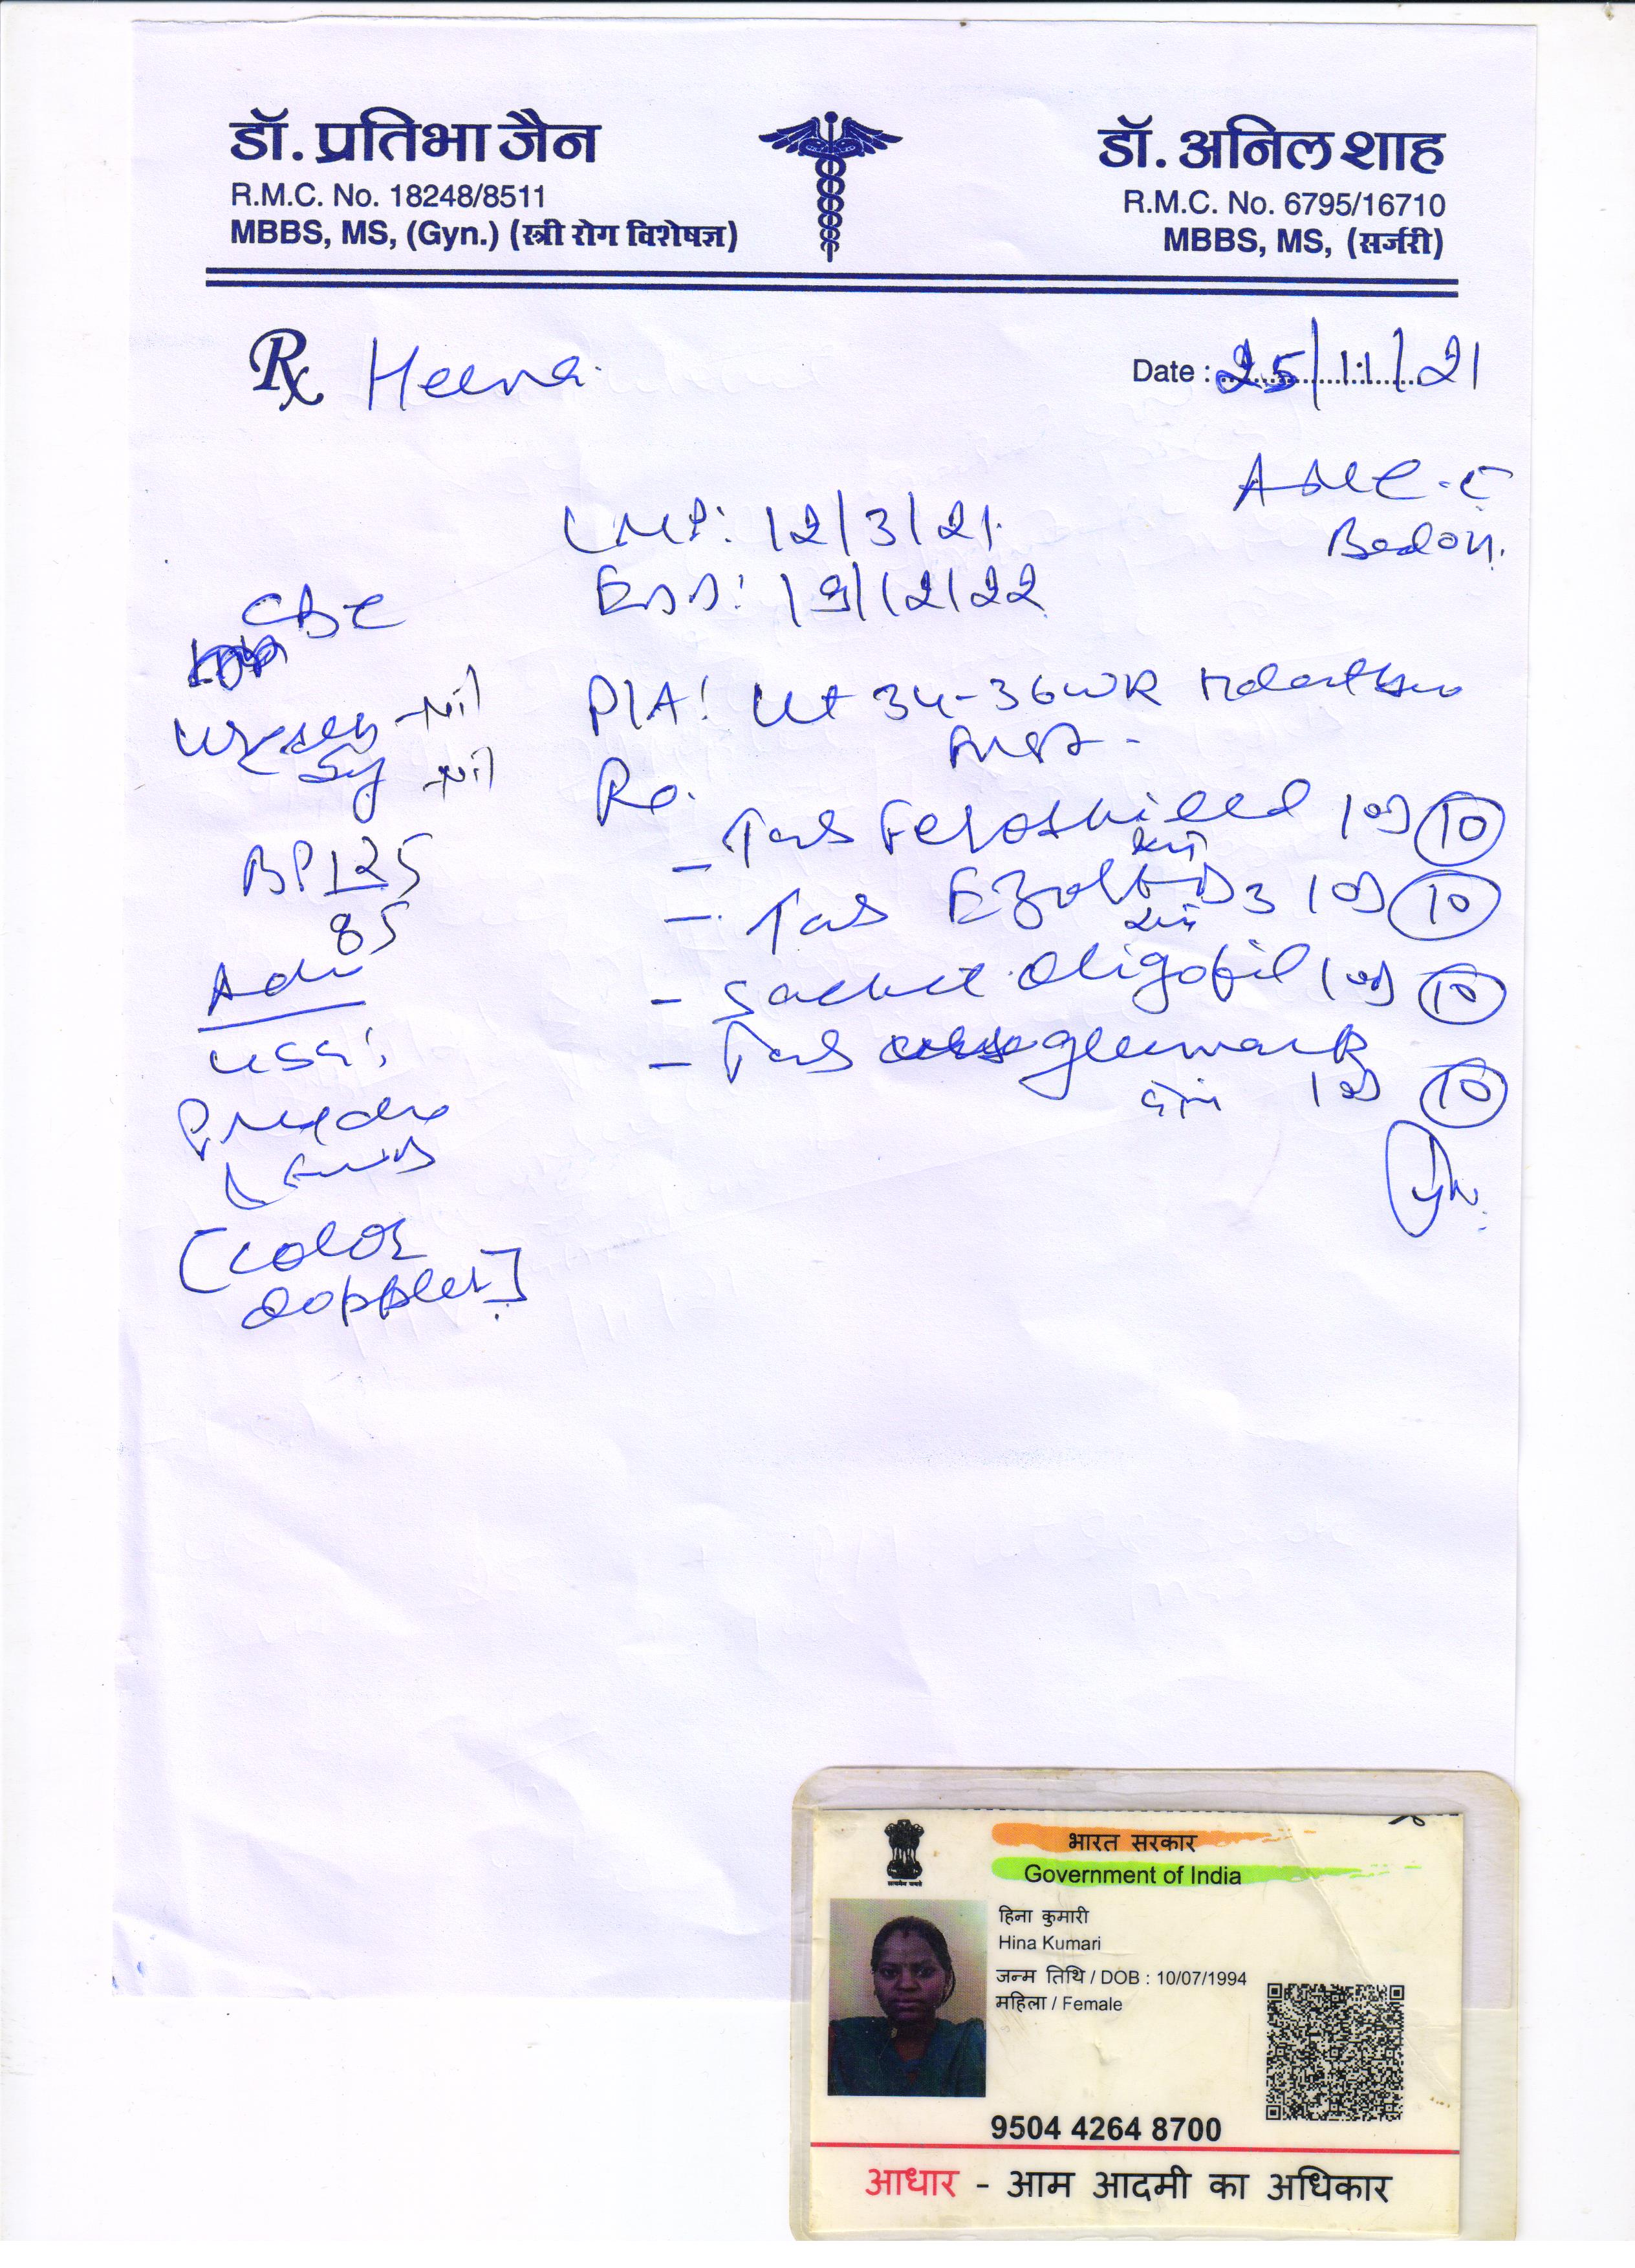 डॉ. प्रतिभा जैन
R.M.C. No. 18248/8511
MBBS, MS, (Gyn.) (स्त्री रोग विशेषज्ञ)
डॉ. अनिल शाह
R.M.C. No. 6795/16710
MBBS, MS, (सर्जरी)
Rx Heena.
Date : 25/11/21
LMP: 12/3/21
EDD: 19/12/22
CBC
-Nil
Sug -Nil
BP 125
85
Adv
USG:
[color
doppler]
P/A: Ut 34-36wk
Rx.
- Tab Feroshield 1 OD 10
- Tab D3 1 OD 10
- Sachet Oligofil 1 OD 10
- Tab
1 OD 10
भारत सरकार
Government of India
हिना कुमारी
Hina Kumari
जन्म तिथि / DOB : 10/07/1994
महिला / Female
9504 4264 8700
आधार - आम आदमी का अधिकार